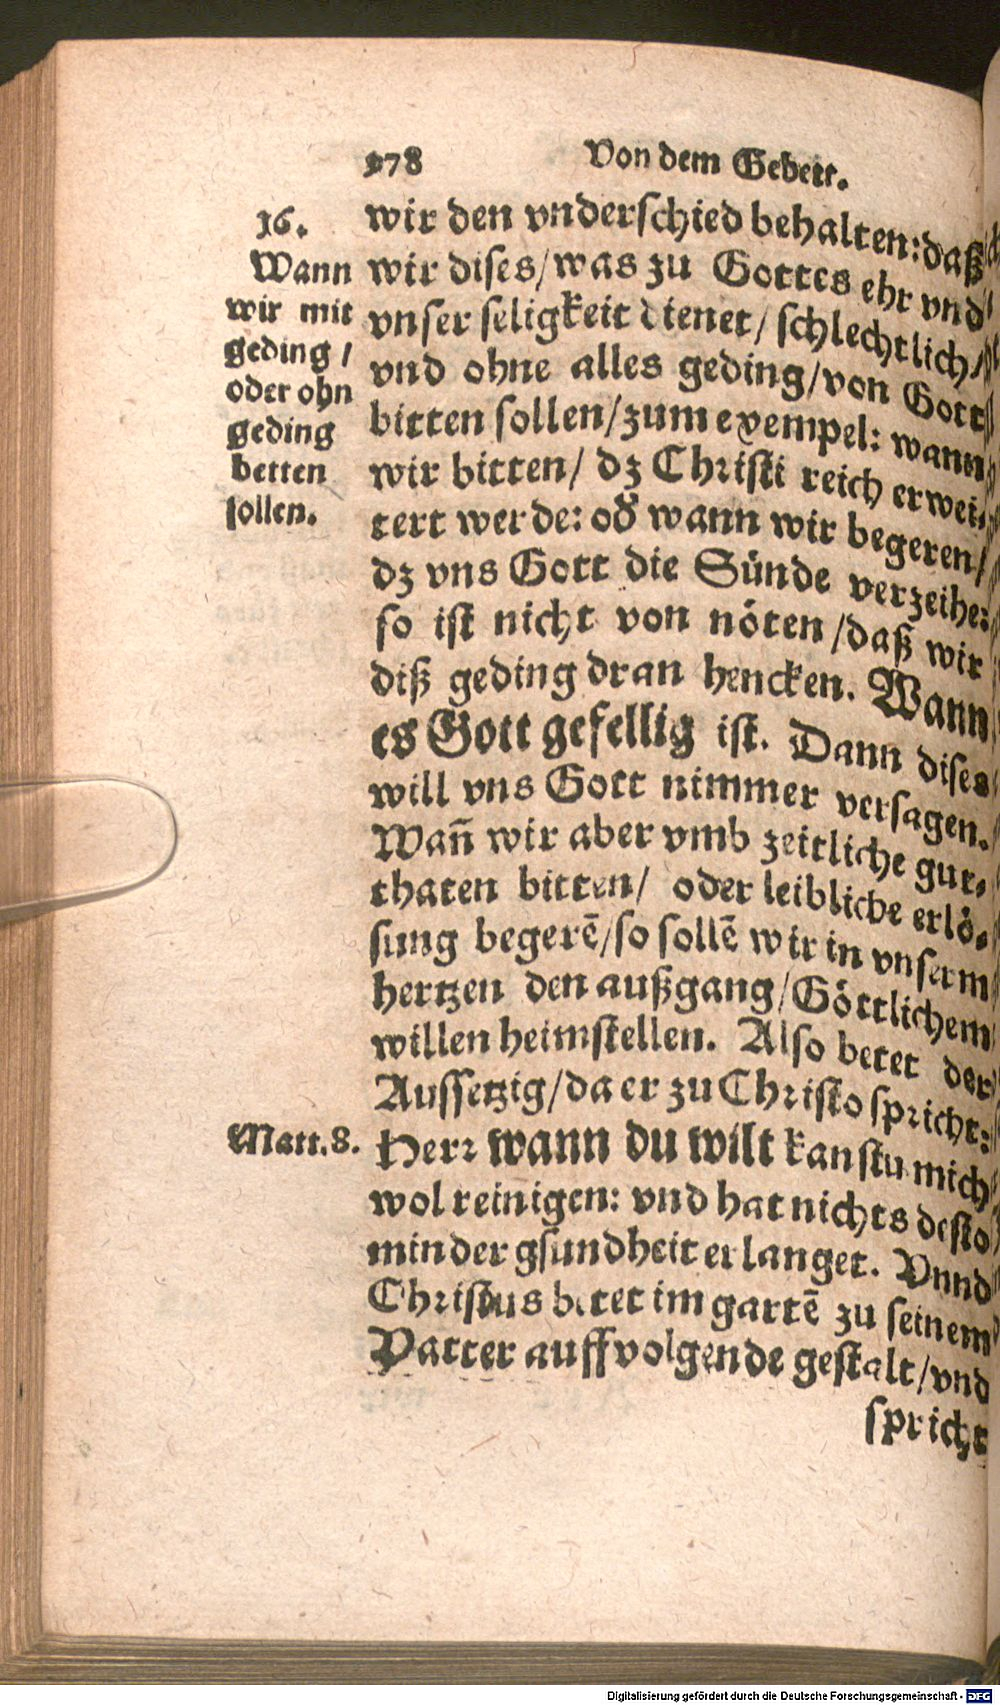 278 Von dem Gebett.
16.
Wann
wir mit
geding /
oder ohn
geding
betten
sollen.
wir den vnderschied behalten: daß
wir dises / was zu Gottes ehr vnd
vnser seligkeit dienet / schlechtlich /
vnd ohne alles geding / von Gott
bitten sollen / zum exempel: wann
wir bitten / dz Christi reich erwei-
tert werde: oď wann wir begeren /
dz vns Gott die Sünde verzeihe:
so ist nicht von nöten / daß wir
diß geding dran hencken. Wann
es Gott gefellig ist. Dann dises
will vns Gott nimmer versagen.
Wañ wir aber vmb zeitliche gut-
thaten bitten / oder leibliche erlö-
sung begerē / so sollē wir in vnserm
hertzen den außgang / Göttlichem
willen heimstellen. Also betet der
Aussetzig / da er zu Christo spricht:
Matt. 8.
Herr wann du wilt kanstu mich
wol reinigen: vnd hat nichts desto
minder gsundheit erlanget. Vnnd
Christus betet im gartē zu seinem
Vatter auff volgende gestalt / vnd
spricht
Digitalisierung gefördert durch die Deutsche Forschungsgemeinschaft - DFG